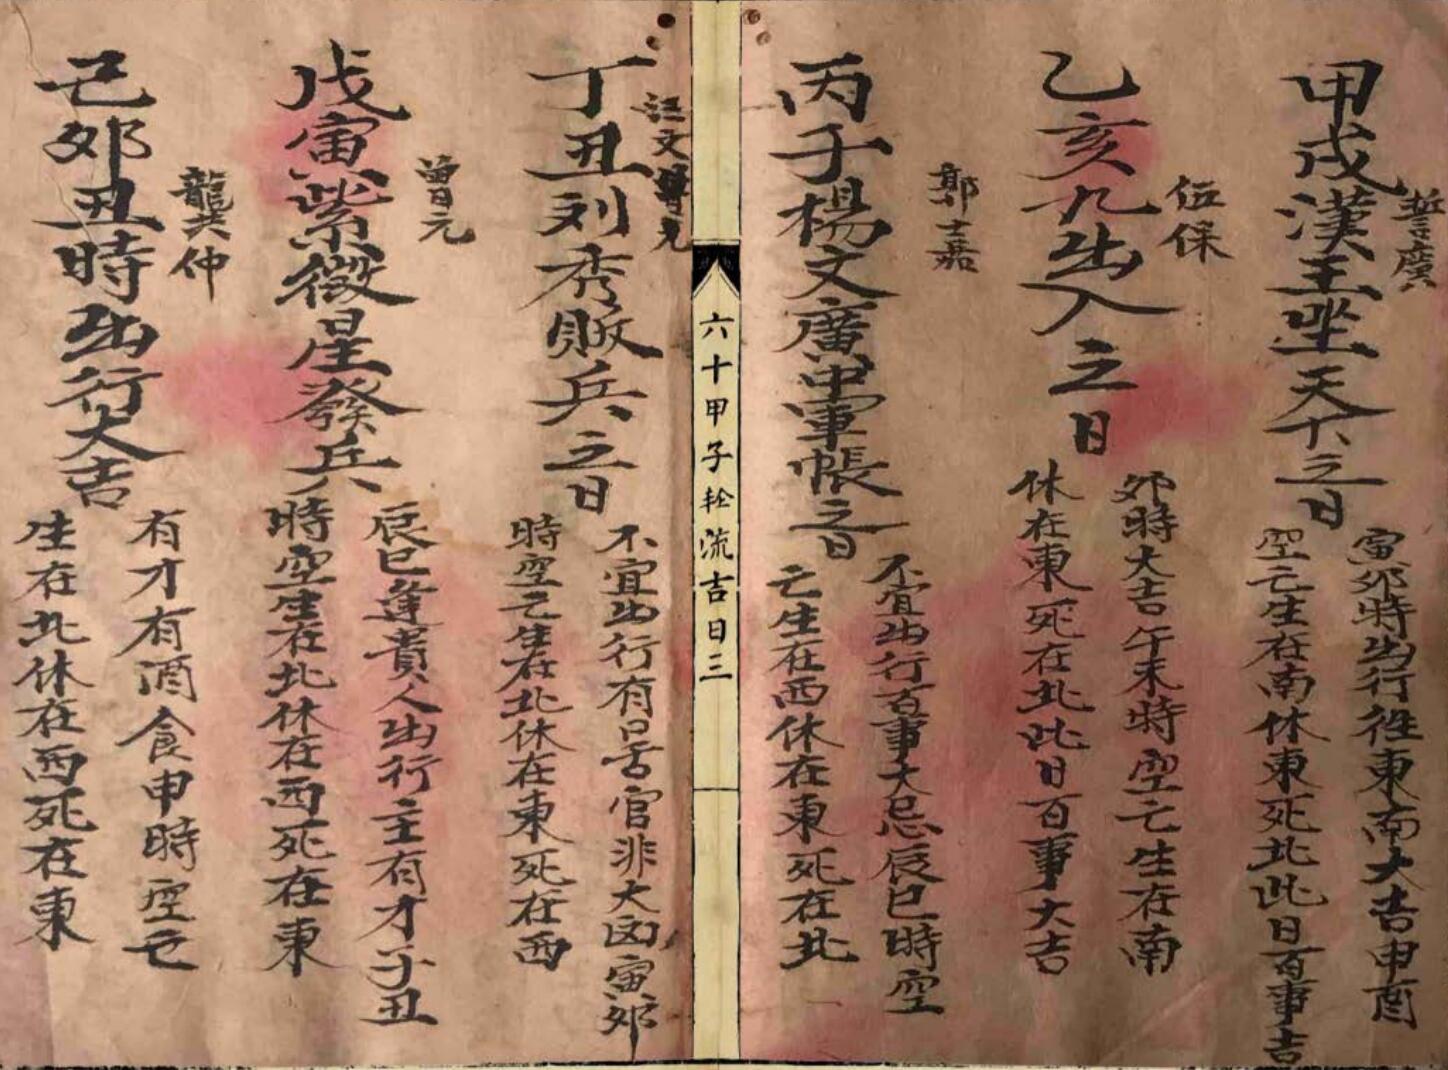 甲戌漢王坐天下之日
誓廣
寅夘時出行徃東南大吉申酉
空亡生在南休東死北此日百事吉
乙亥九出入之日
伍保
夘時大吉午未時空亡生在南
休在東死在北此日百事大吉
丙子楊文廣中軍帳之日
郭士嘉
不宜出行百事大忌辰巳時空
亡生在西休在東死在北
六十甲子轮流吉日三
丁丑刘秀敗兵之日
江文
不宜出行有口舌官非大凶寅夘
時空亡生在北休在東死在西
戊寅紫微星發兵
曾元
辰巳逢貴人出行主有才子丑
時空生在北休在西死在東
己夘丑時出行大吉
龍共仲
有才有酒食申時空亡
生在北休在西死在東